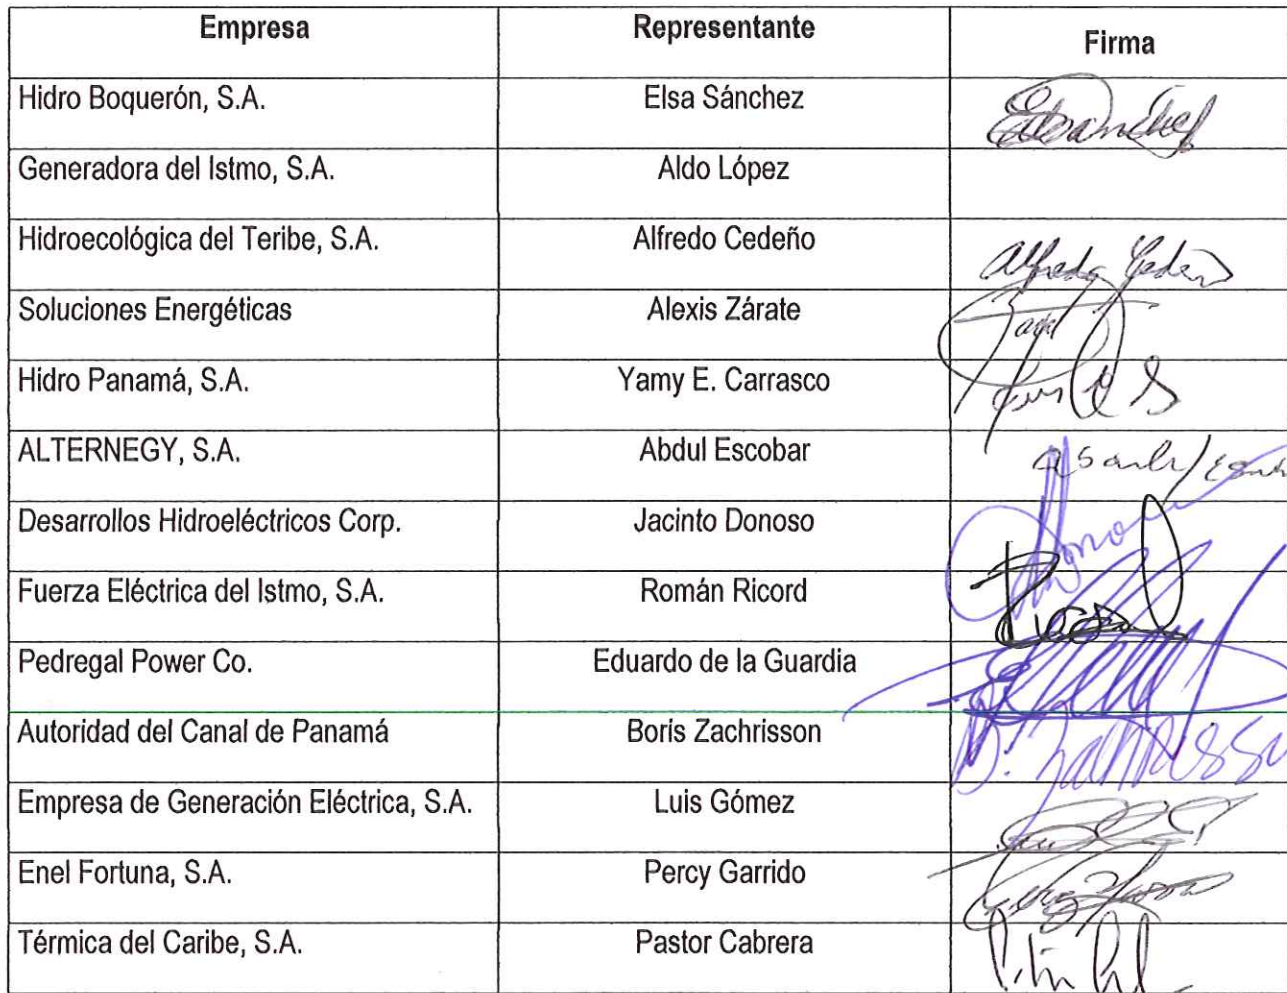 Empresa Representante Firma
Hidro Boquerón, S.A. Elsa Sánchez
Generadora del Istmo, S.A. Aldo López
Hidroecológica del Teribe, S.A. Alfredo Cedeño Alfredo Cedeño
Soluciones Energéticas Alexis Zárate
Hidro Panamá, S.A. Yamy E. Carrasco
ALTERNEGY, S.A. Abdul Escobar
Desarrollos Hidroeléctricos Corp. Jacinto Donoso
Fuerza Eléctrica del Istmo, S.A. Román Ricord
Pedregal Power Co. Eduardo de la Guardia
Autoridad del Canal de Panamá Boris Zachrisson
Empresa de Generación Eléctrica, S.A. Luis Gómez
Enel Fortuna, S.A. Percy Garrido
Térmica del Caribe, S.A. Pastor Cabrera